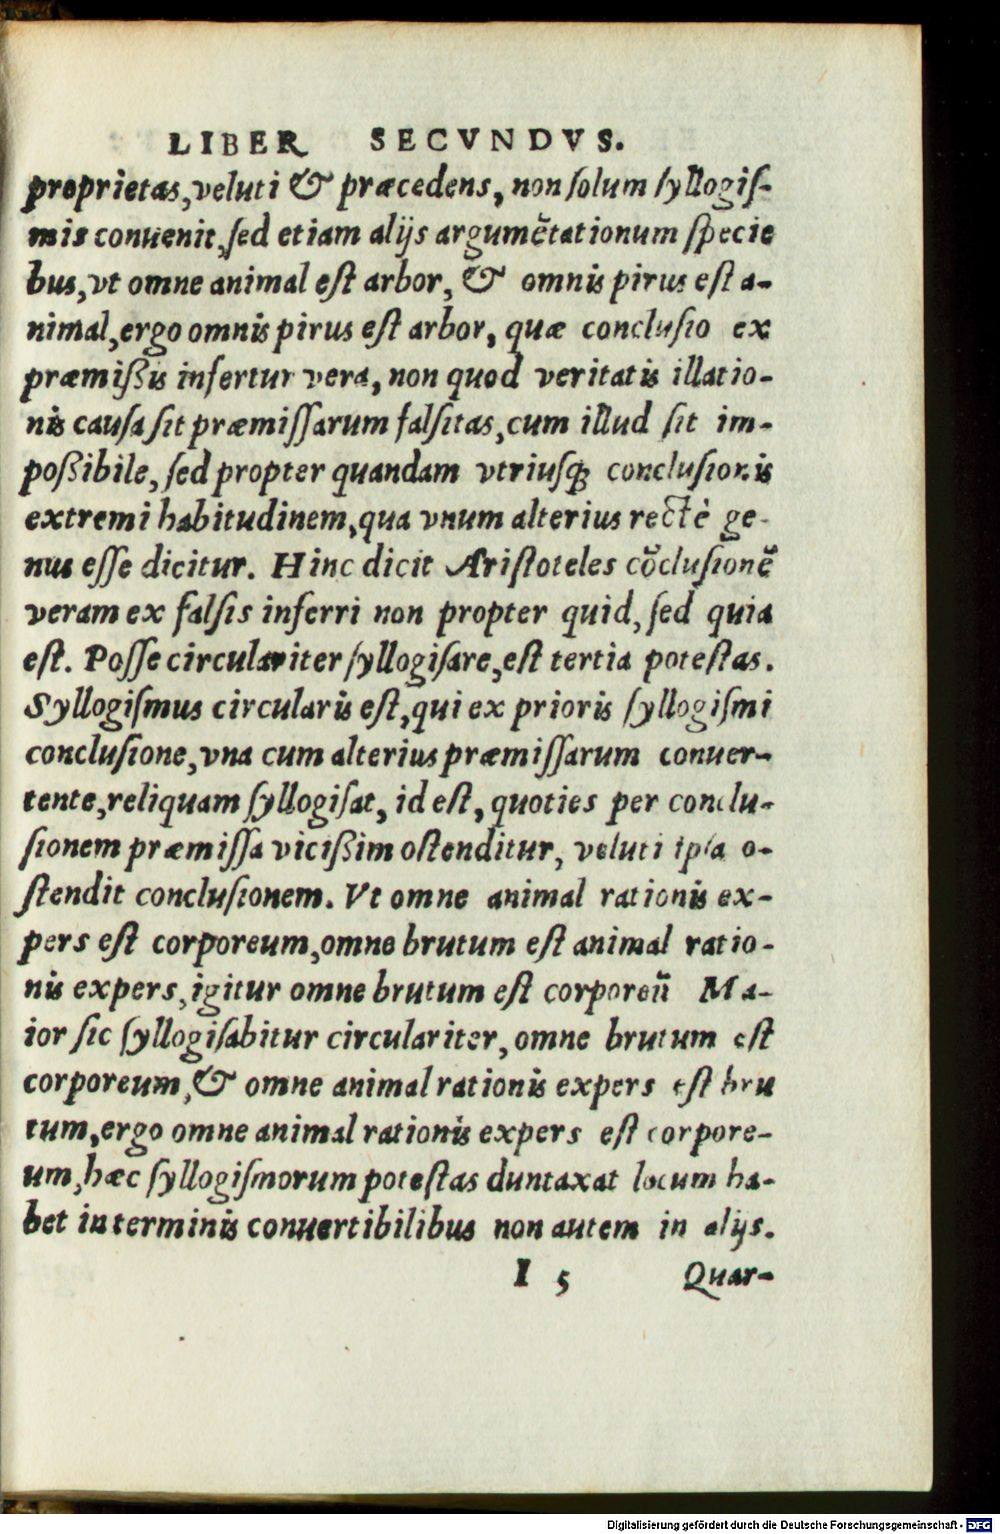 LIBER SECVNDVS.
proprietas, veluti & præcedens, non solum syllogis-
mis conuenit, sed etiam alijs argumẽtationum specie
bus, vt omne animal est arbor, & omnis pirus est a-
nimal, ergo omnis pirus est arbor, quæ conclusio ex
præmißis infertur vera, non quod veritatis illatio-
nis causa sit præmissarum falsitas, cum illud sit im-
poßibile, sed propter quandam vtriusq; conclusionis
extremi habitudinem, qua vnum alterius rectè ge-
nus esse dicitur. Hinc dicit Aristoteles cõclusionẽ
veram ex falsis inferri non propter quid, sed quia
est. Posse circulariter syllogisare, est tertia potestas.
Syllogismus circularis est, qui ex prioris syllogismi
conclusione, vna cum alterius præmissarum conuer-
tente, reliquam syllogisat, id est, quoties per conclu-
sionem præmissa vicißim ostenditur, veluti ipsa o-
stendit conclusionem. Vt omne animal rationis ex-
pers est corporeum, omne brutum est animal ratio-
nis expers, igitur omne brutum est corporeũ Ma-
ior sic syllogisabitur circulariter, omne brutum est
corporeum, & omne animal rationis expers est bru
tum, ergo omne animal rationis expers est corpore-
um, hæc syllogismorum potestas duntaxat locum ha-
bet in terminis conuertibilibus non autem in alijs.
I 5 Quar-
Digitalisierung gefördert durch die Deutsche Forschungsgemeinschaft - DFG